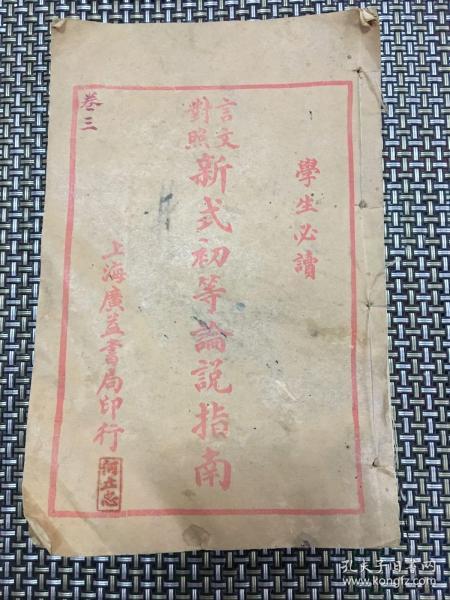 學生必讀
言文對照
新式初等論説指南
上海廣益書局印行
卷三
孔夫子旧书网
www.kongfz.com